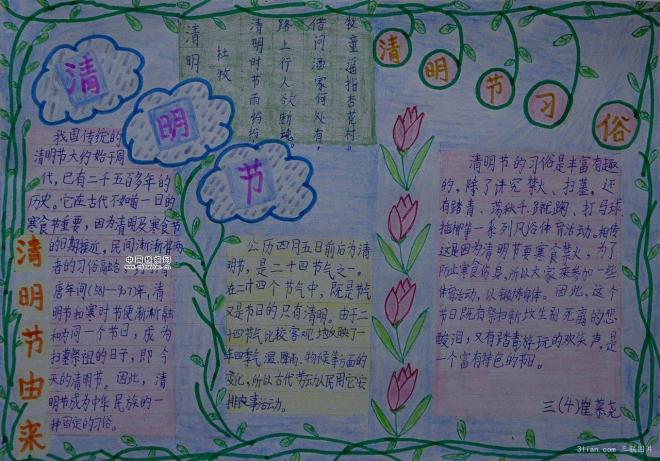 清
明
节
清明
杜牧
清明时节雨纷纷
路上行人欲断魂。
借问酒家何处有，
牧童遥指杏花村。
清明节习俗
清明节由来
我国传统的
清明节大约始于周
代，已有二千五百多年的
历史，它在古代不如前一日的
寒食节重要，因为清明及寒食节
的日期接近，民间渐渐将两
者的习俗融合
唐年间(581-907年，清
明节和寒时节便渐渐融
和为同一个节日，成为
扫墓祭祖的日子，即今
天的清明节。因此，清
明节成为中华民族的一
种固定的习俗。
公历四月五日前后为清
明节，是二十四节气之一。
在二十四个节气中，既是节气
又是节日的只有清明。由于二
十四节气比较客观地反映了一
年四季气温、雨、物候等方面的
变化，所以古代劳动人民用它安
排农事活动。
清明节的习俗是丰富有趣
的，除了讲究禁火、扫墓，还
有踏青、荡秋千、蹴鞠、打马球、
插柳等一系列风俗体育活动。相传
这是因为清明节要寒食禁火，为了
防止寒食伤身，所以大家来参加一些
体育活动，以锻炼身体。因此，这个
节日既有祭扫新坟生别死离的悲
酸泪，又有踏青游玩的欢笑声，是
一个富有特色的节日。
三(4)
中国板报网
3lian.com 三联图片